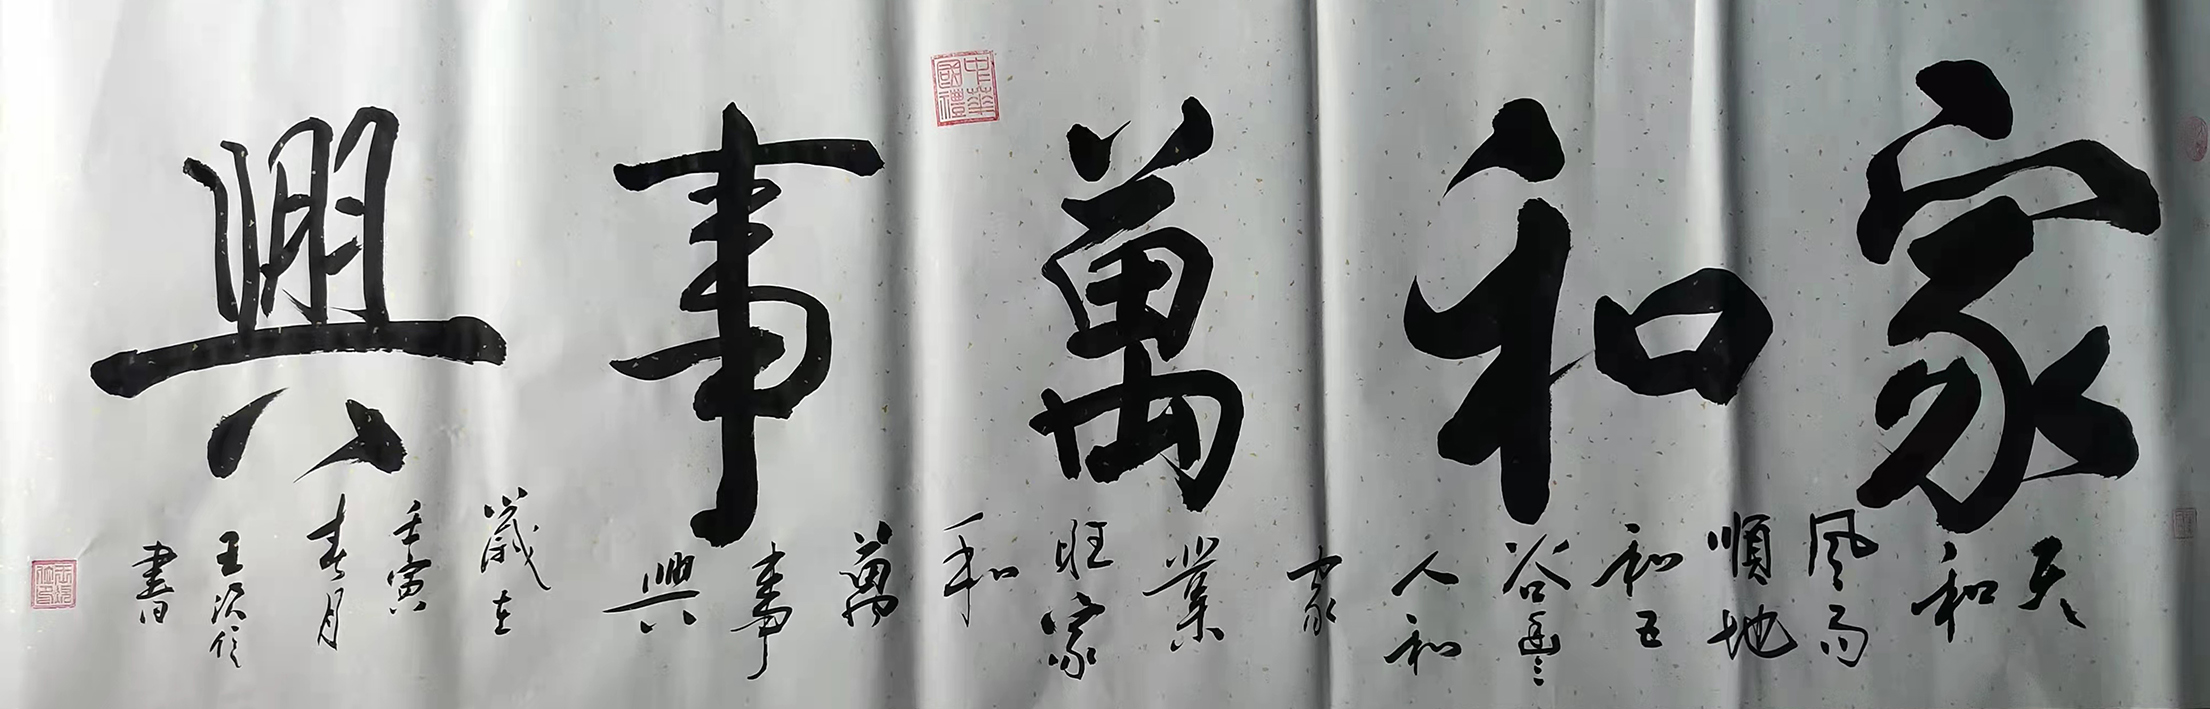 家和萬事興
天和風雨順地和五谷豐人和家業旺家和萬事興
歲在壬寅春月王
書
中華國禮